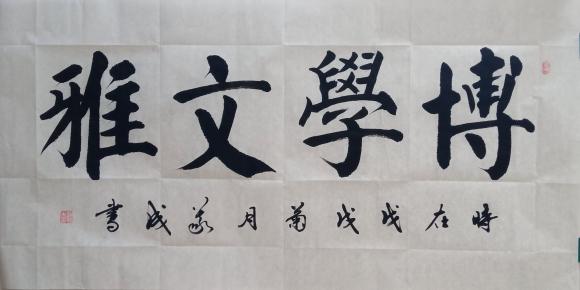 博學文雅
時在戊戌菊月成書